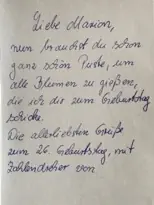 Liebe Marion,
nun brauchst du schon
ganz schön Puste, um
alle Blumen zu gießen,
die ich dir zum Geburtstag
schicke.
Die allerliebsten Grüße
zum 26. Geburtstag, mit
von